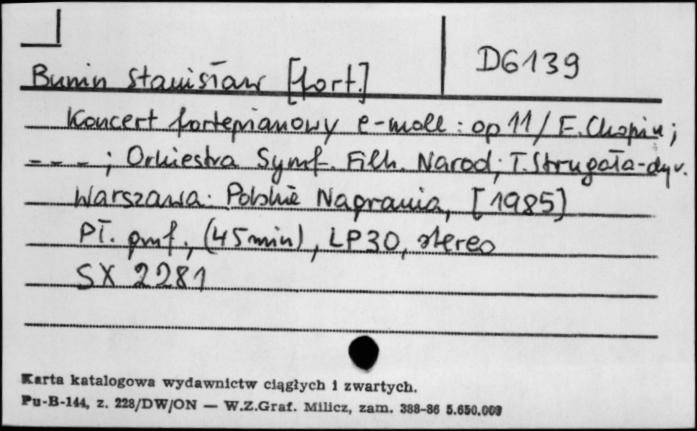 D6139
Bunin Stanisław [fort.]
Koncert fortepianowy e-moll : op 11 / F. Chopin ;
--- ; Orkiestra Symf. Filh. Narod ; T. Strugała - dyr.
Warszawa : Polskie Nagrania, [1985]
Pł. gmf., (45 min), LP30, stereo
SX 2281
Karta katalogowa wydawnictw ciągłych i zwartych.
Pu-B-144, z. 228/DW/ON — W.Z.Graf. Milicz, zam. 388-86 5.650.000